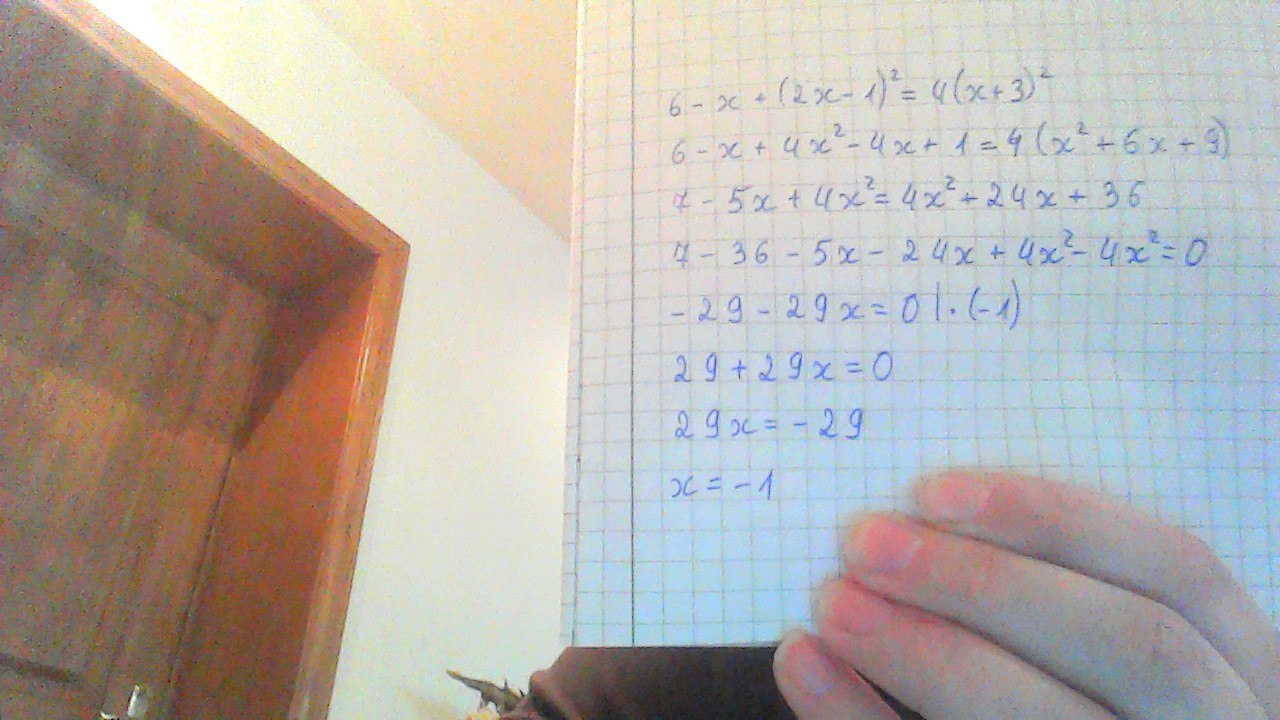 6 - x + (2x - 1)² = 4(x + 3)²
6 - x + 4x² - 4x + 1 = 4(x² + 6x + 9)
7 - 5x + 4x² = 4x² + 24x + 36
7 - 36 - 5x - 24x + 4x² - 4x² = 0
- 29 - 29x = 0 | · (-1)
29 + 29x = 0
29x = - 29
x = - 1